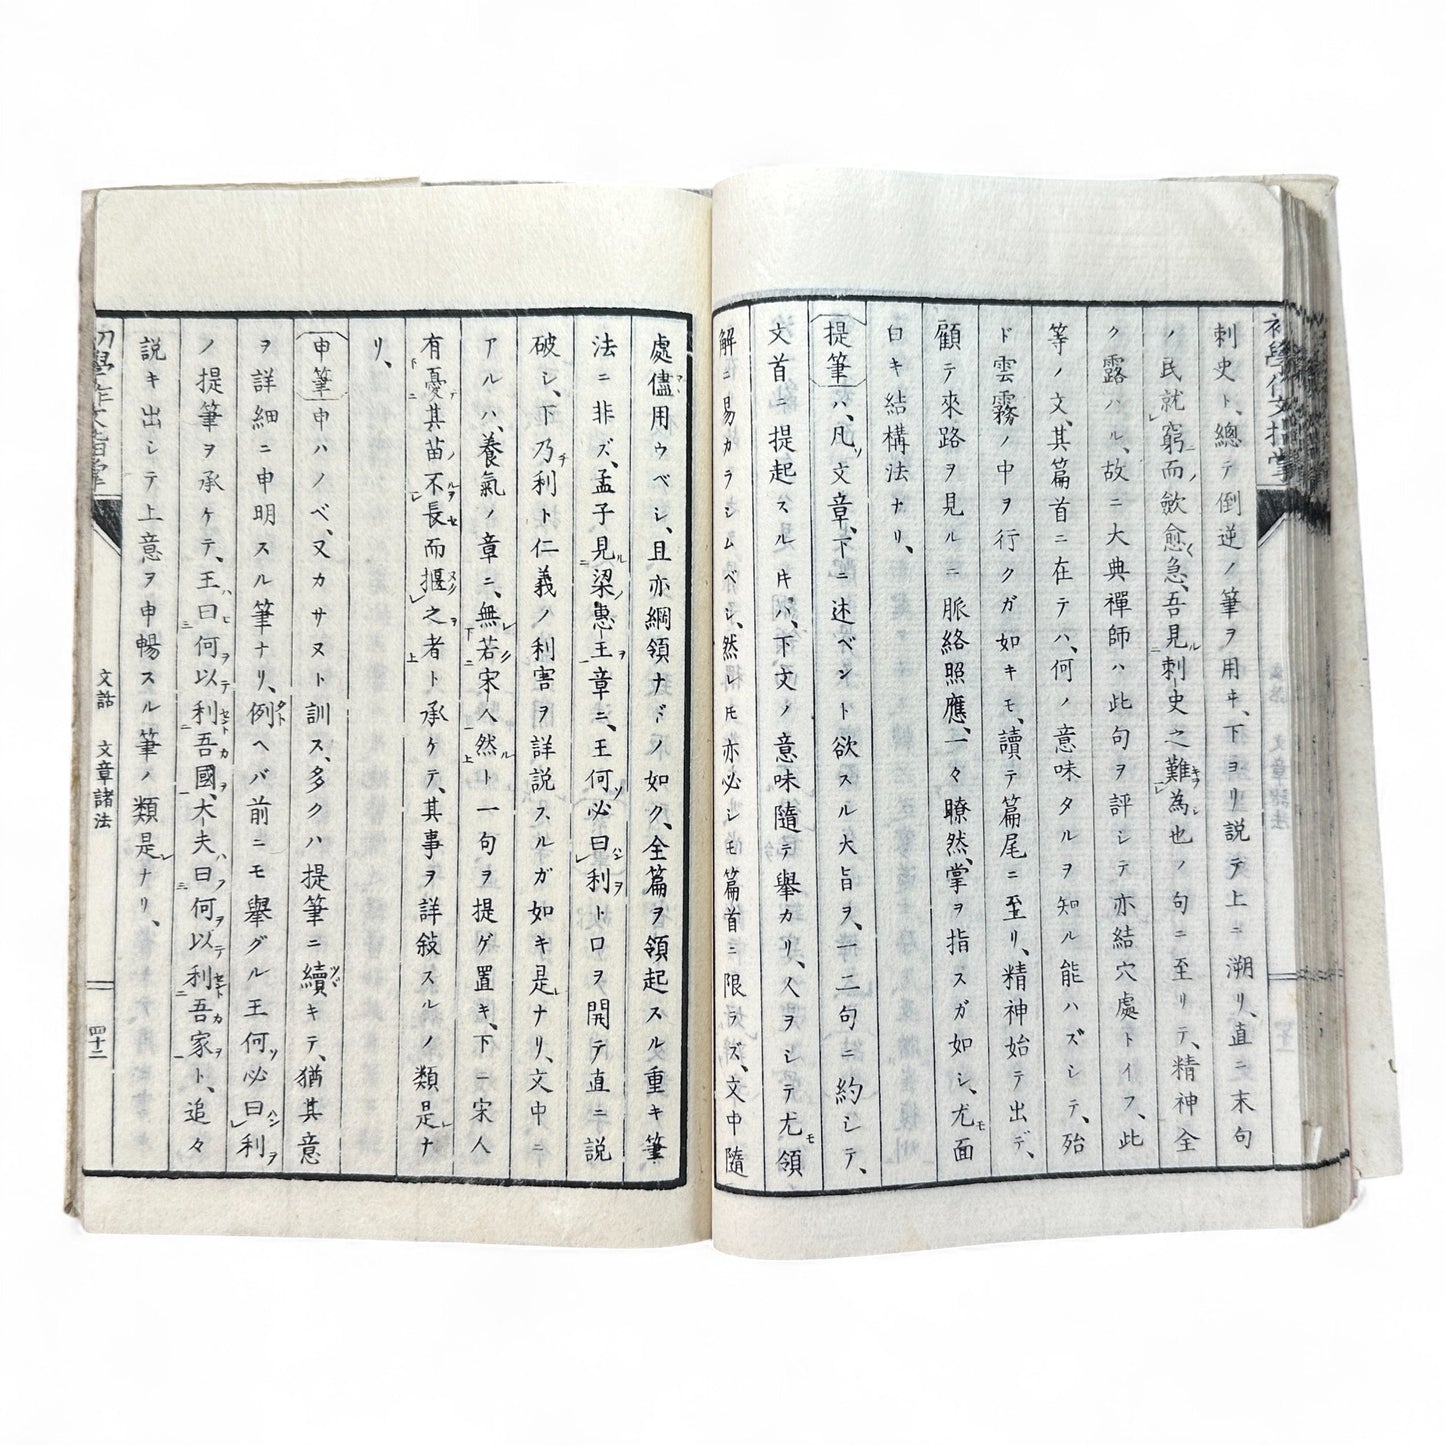 刺史ト、總テ倒逆ノ筆ヲ用ヰ、下ヨリ說テ上ニ溯リ、直ニ末句
ノ民就窮而斂愈急、吾見刺史之難為也ノ句ニ至リテ、精神全
ク露ハル、故ニ大典禪師ハ此句ヲ評シテ亦結穴處トイフ、此
等ノ文、其篇首ニ在テハ、何ノ意味タルヲ知ル能ハズシテ、殆
ド雲霧ノ中ヲ行クガ如キモ、讀テ篇尾ニ至リ、精神始テ出デ、
顧テ來路ヲ見ルニ脈絡照應、一々瞭然、掌ヲ指スガ如シ、尤モ面
白キ結構法ナリ、
提筆ハ、凡ソ文章、下ニ述ベント欲スル大旨ヲ、一二句ニ約シテ、
文首ニ提起スル𪜈ハ、下文ノ意味隨テ舉カリ、人ヲシテ尤モ領
解ニ易カラシムベシ、然レ𪜈亦必シモ篇首ニ限ラズ、文中隨
處儘用ウベシ、且亦綱領ナドノ如ク、全篇ヲ領起スル重キ筆
法ニ非ズ、孟子見梁惠王章ニ、王何必曰利ト口ヲ開テ直ニ說
破シ、下乃チ利ト仁義ノ利害ヲ詳說スルガ如キ是ナリ、文中ニ
アルハ、養氣ノ章ニ、無若宋人然ト一句ヲ提ゲ置キ、下ニ宋人
有憂其苗不長而揠之者ト承ケテ、其事ヲ詳敍スルノ類是ナ
リ、
申筆申ハノベ、又カサヌト訓ス、多クハ提筆ニ續キテ、猶其意
ヲ詳細ニ申明スル筆ナリ、例ヘバ前ニモ舉グル王何必曰利
ノ提筆ヲ承ケテ、王曰何以利吾國、大夫曰何以利吾家ト、追々
說キ出シテ上意ヲ申暢スル筆ノ類是ナリ、
初學作文指掌
文話　文章諸法
四十二